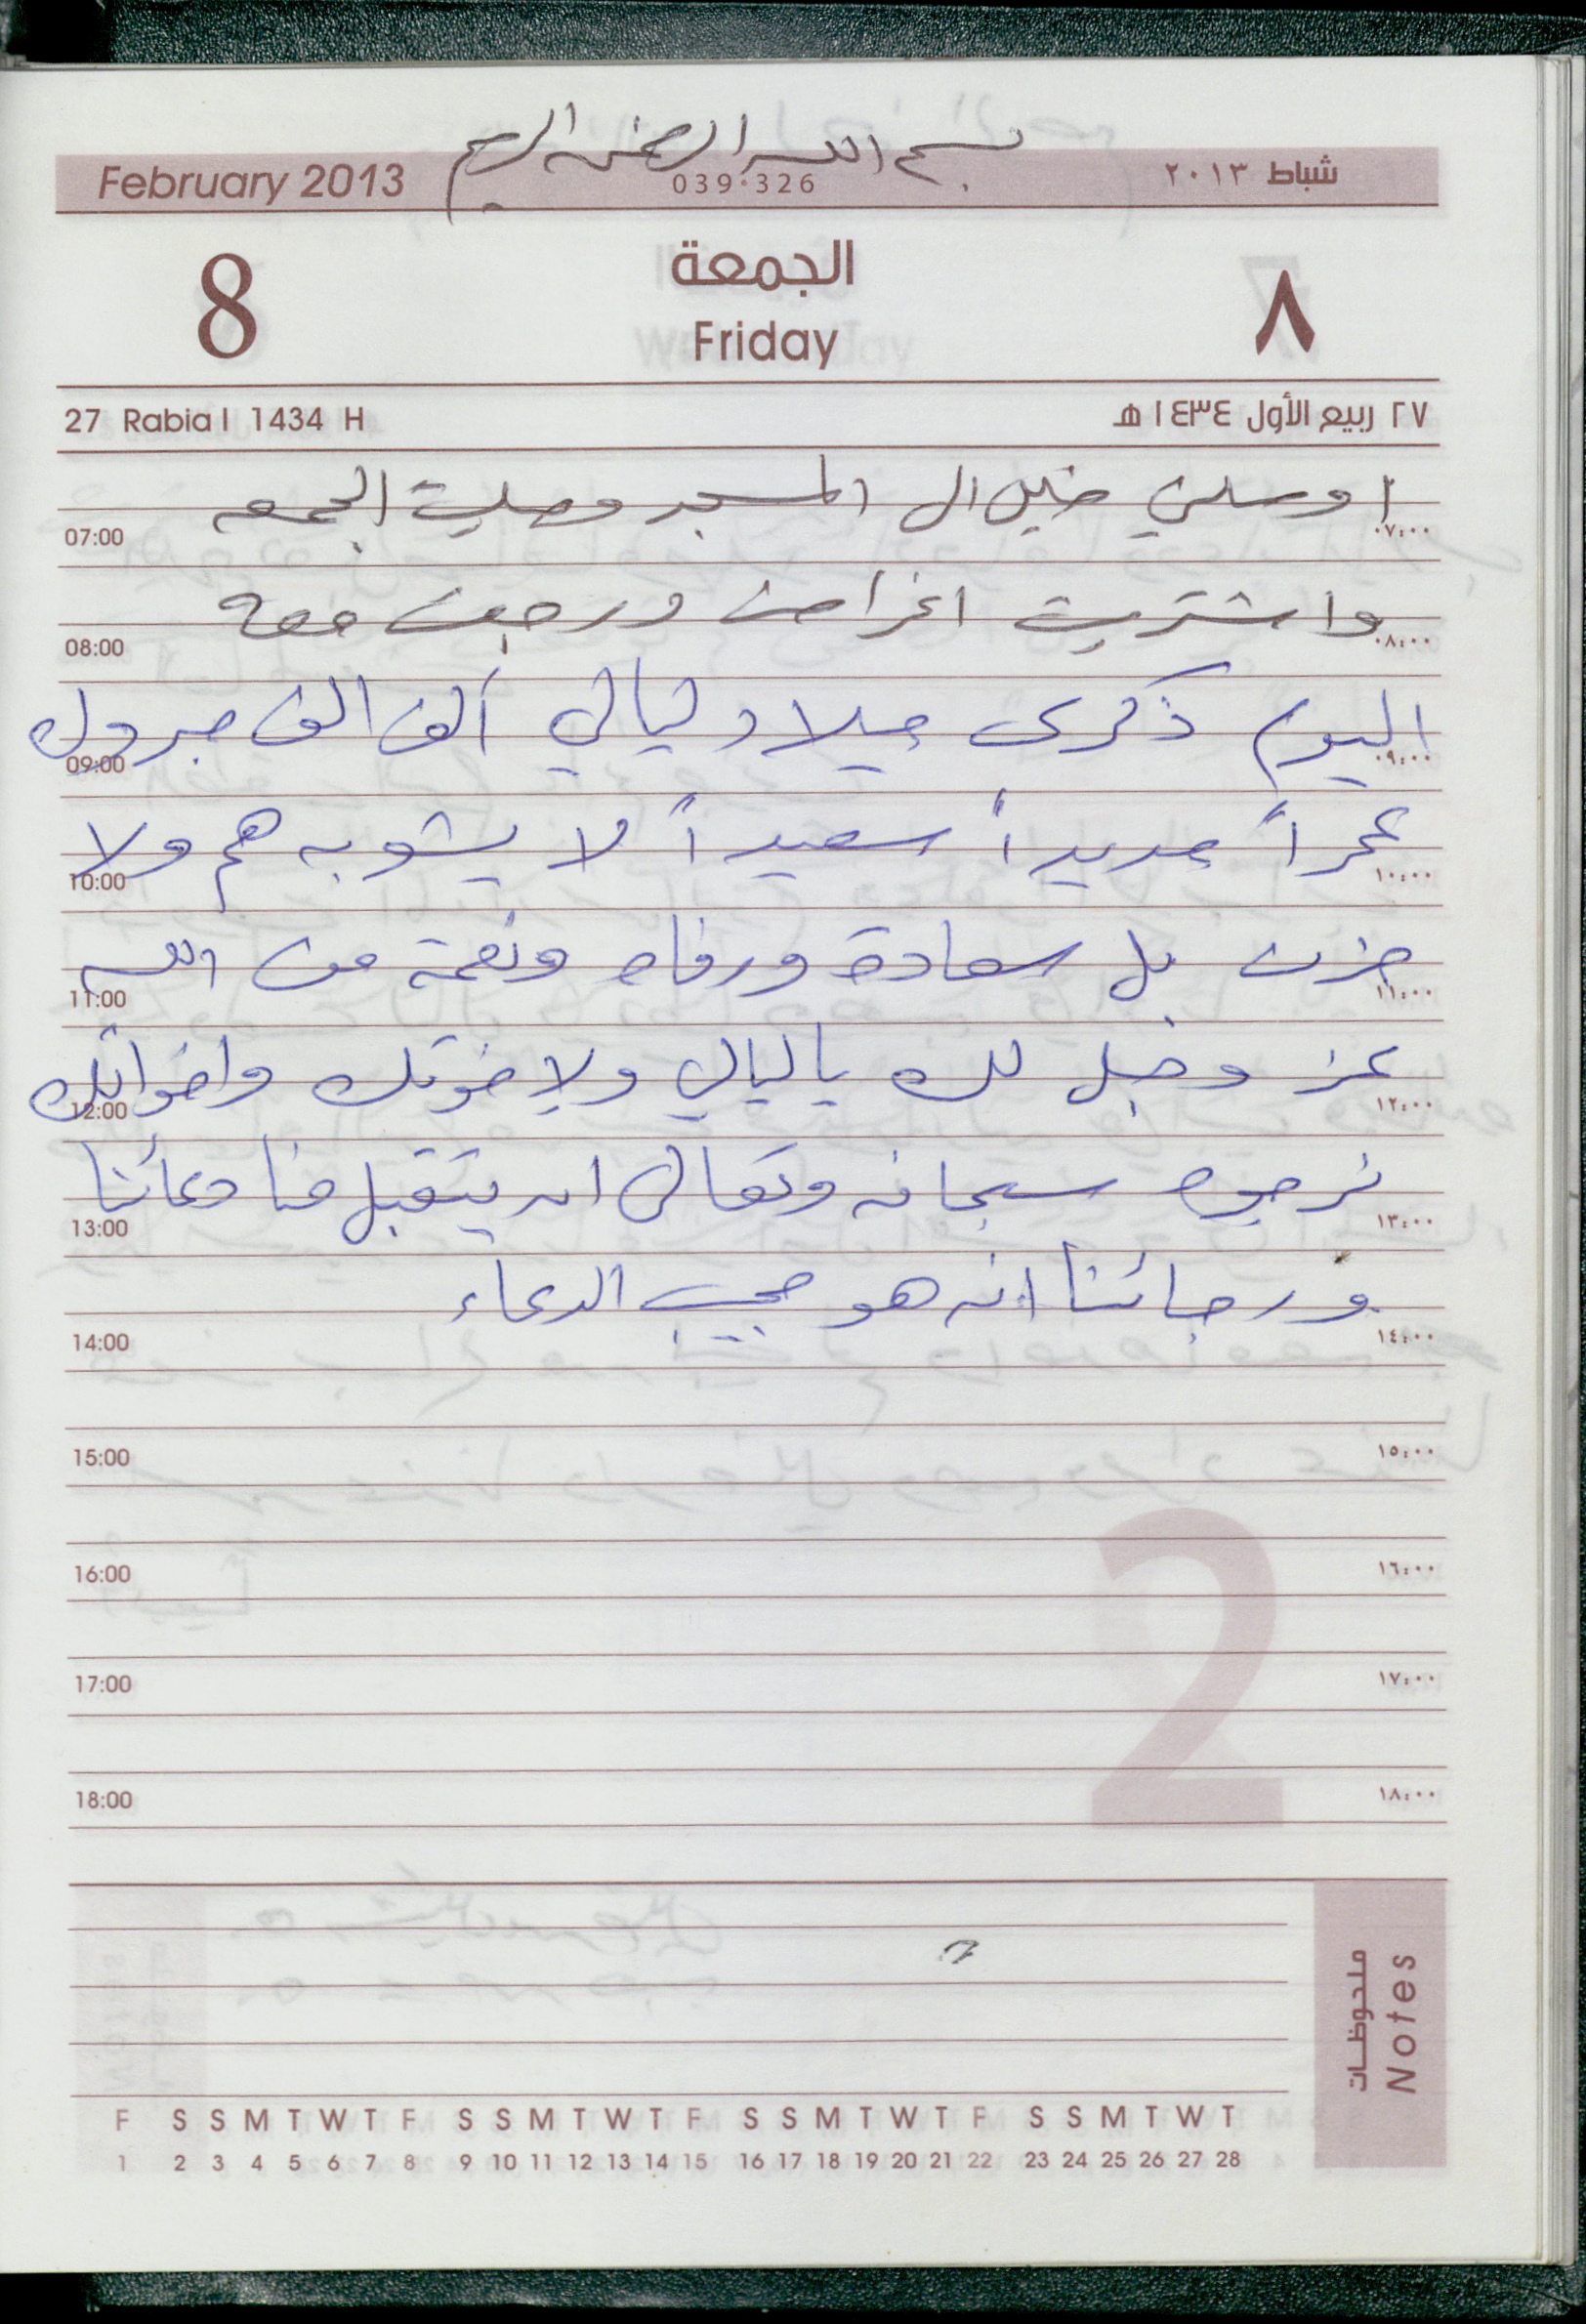 بسم الله الرحمن الرحيم
February 2013 039·326 شباط ٢٠١٣
8 الجمعة ٨
Friday
27 Rabia I 1434 H ٢٧ ربيع الأول ١٤٣٤ هـ
اوصلني خليل الى المسجد وصليت الجمعه
07:00 ٠٧:٠٠
واشتريت اغراض ورجعت معه
08:00 ٠٨:٠٠
اليوم ذكرى ميلاد ليالي ألف الف مبروك
09:00 ٠٩:٠٠
عمراً مديداً سعيداً لا يشوبه هم ولا
10:00 ١٠:٠٠
حزن بل سعادة ورفاه ونعمة من الله
11:00 ١١:٠٠
عز وجل لك يا ليالي ولإخوتك واخواتك
12:00 ١٢:٠٠
نرجوه سبحانه وتعالى ان يتقبل منا دعائنا
13:00 ١٣:٠٠
ورجائنا انه هو مجيب الدعاء
14:00 ١٤:٠٠
15:00 ١٥:٠٠
16:00 ١٦:٠٠
17:00 ١٧:٠٠
18:00 ١٨:٠٠
2
ملحوظات
Notes
F S S M T W T F S S M T W T F S S M T W T F S S M T W T
1 2 3 4 5 6 7 8 9 10 11 12 13 14 15 16 17 18 19 20 21 22 23 24 25 26 27 28